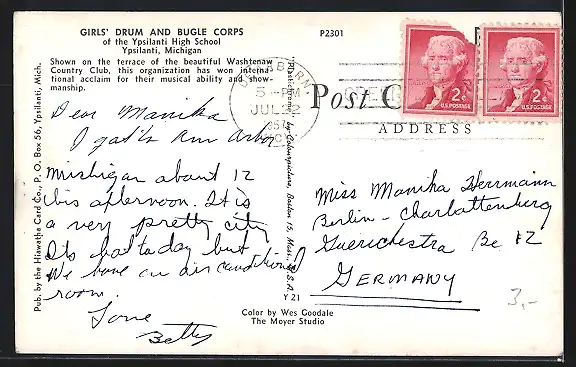 GIRLS' DRUM AND BUGLE CORPS
of the Ypsilanti High School
Ypsilanti, Michigan
Shown on the terrace of the beautiful Washtenaw
Country Club, this organization has won interna-
tional acclaim for their musical ability and show-
manship.
P2301
Pub. by the Hiawatha Card Co., P. O. Box 56, Ypsilanti, Mich.
"Plastichrome" by Colourpicture, Boston 15, Mass., U.S.A.
Y 21
DEARBORN
5 - PM
JUL 2
195
MICH
Post C
ADDRESS
2¢
U.S. POSTAGE
2¢
U.S. POSTAGE
Dear Manika
I got in Ann Arbor
Mishigan about 12
this afternoon. It is
a very pretty city
Its hot today but
We have an air conditioned
room.
Love
Betty
Miss Manika Herrmann
Berlin - Charlattenberg
Guerichestra Be 12
GERMANY
3,-
Color by Wes Goodale
The Moyer Studio